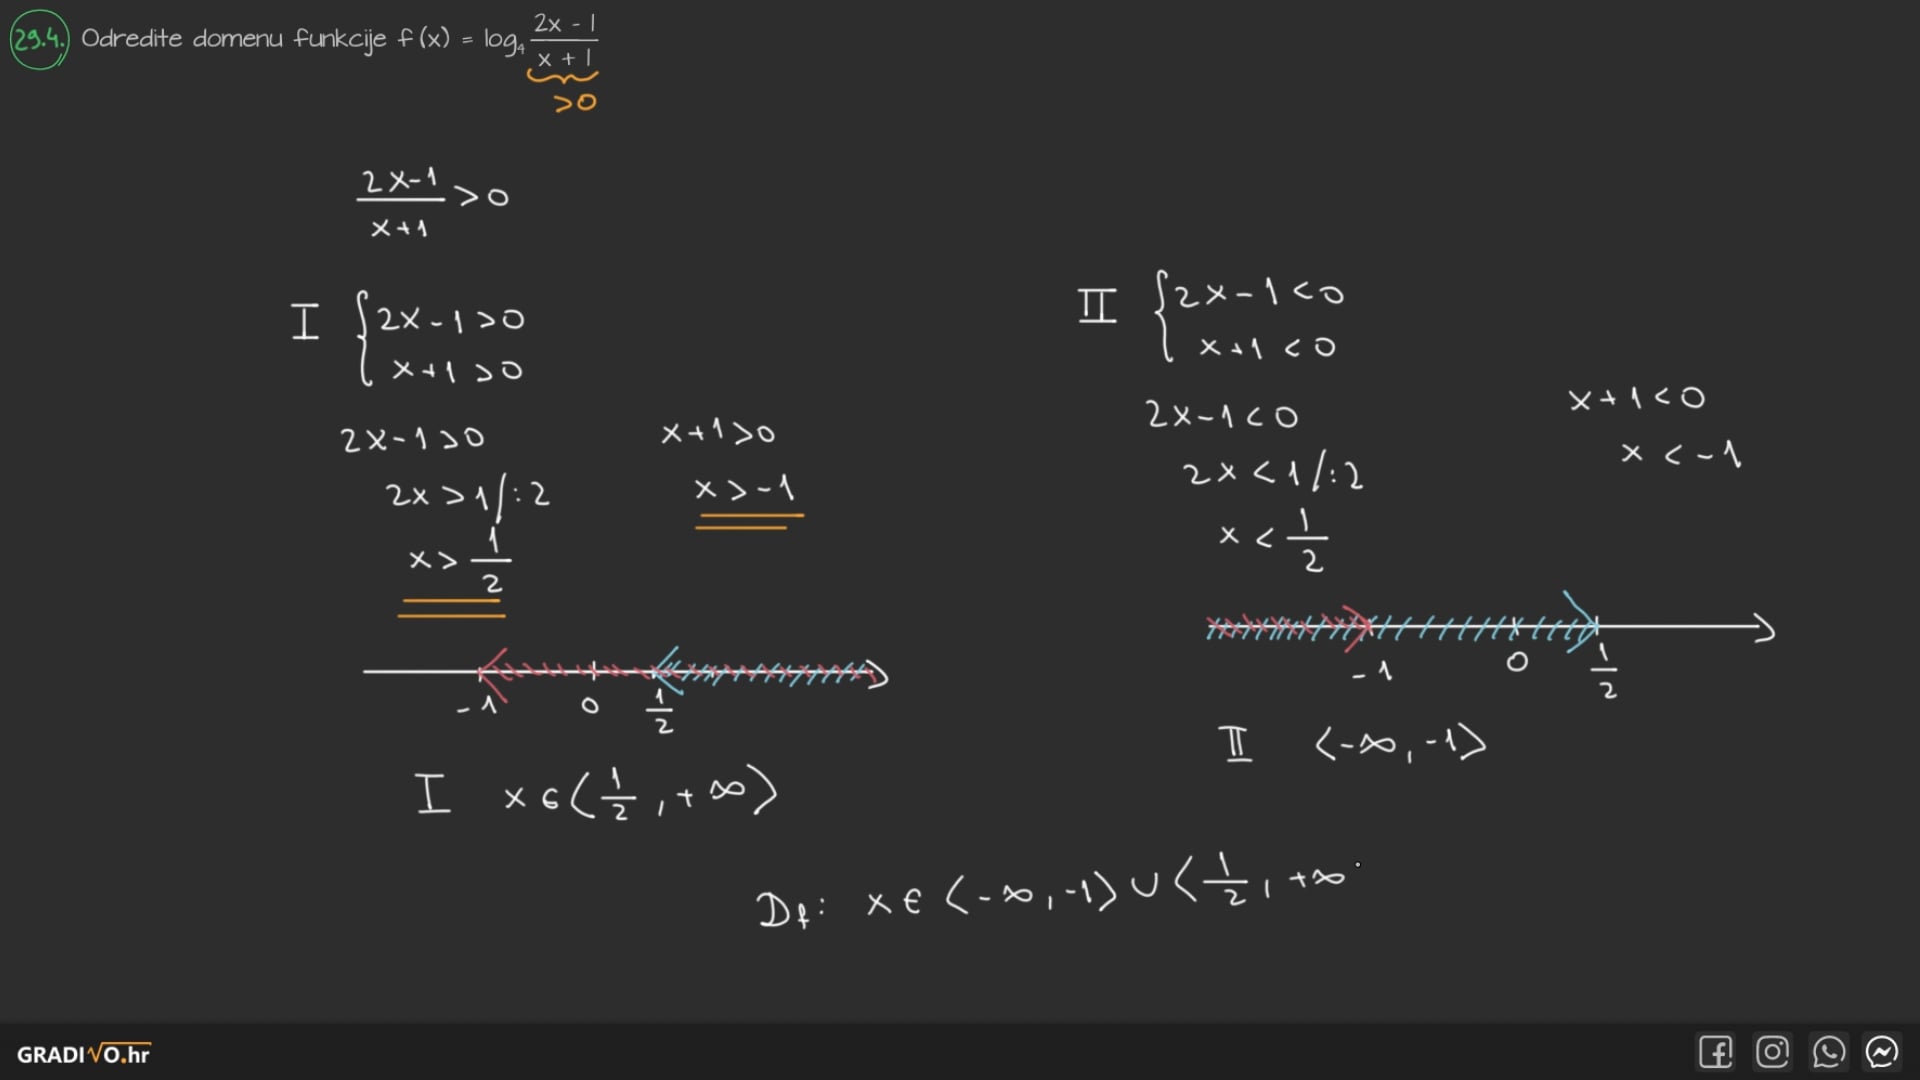 29.4. Odredite domenu funkcije f(x) = log₄ (2x - 1)/(x + 1)
>0
(2x-1)/(x+1) >0
I { 2x-1>0
x+1>0
2x-1>0
2x>1/:2
x> 1/2
x+1>0
x>-1
-1 0 1/2
I x∈⟨1/2, +∞⟩
II { 2x-1<0
x+1<0
2x-1<0
2x<1/:2
x< 1/2
x+1<0
x<-1
-1 0 1/2
II ⟨-∞, -1⟩
Df: x∈⟨-∞, -1⟩∪⟨1/2, +∞
GRADIVO.hr